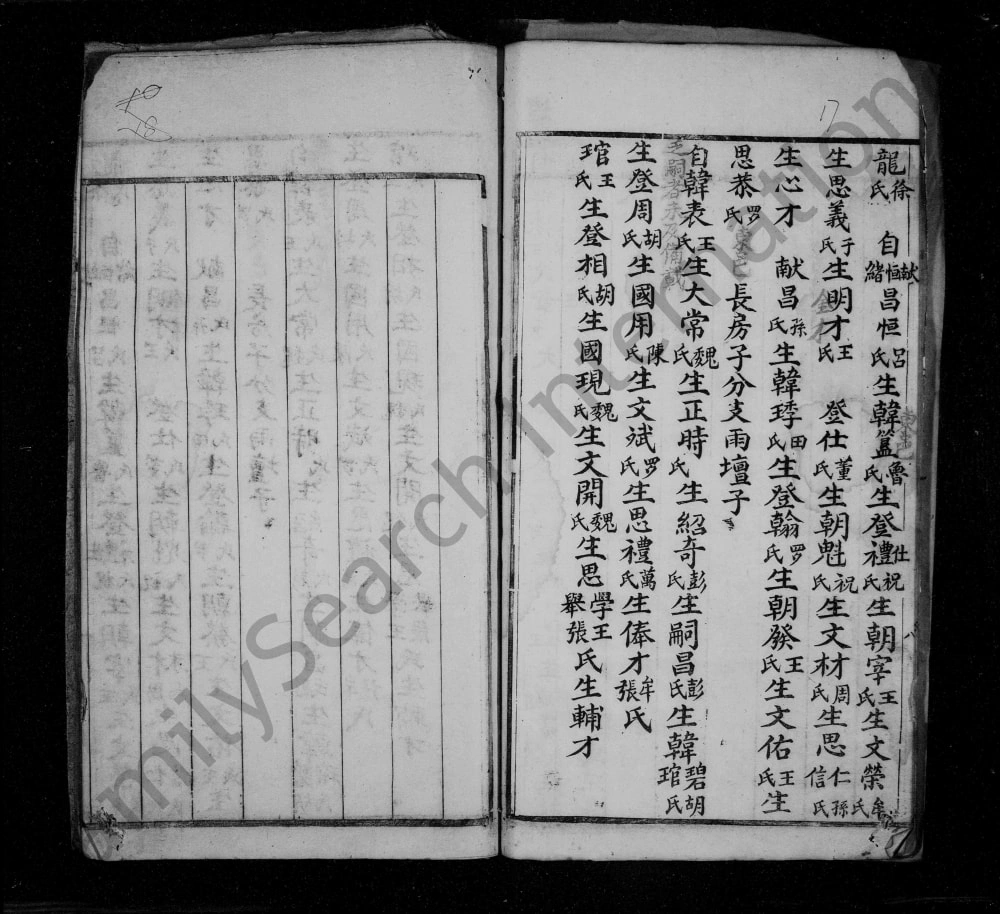 17
龍徐氏 自献恒緒昌恒呂氏生韓簋魯氏生登禮仕祝氏生朝宰王氏生文榮牟氏
生思義于氏生明才王氏 登仕董氏生朝魁祝氏生文材周氏生思仁信孫氏
生心才 献昌孫氏生韓琈田氏生登翰羅氏生朝發王氏生文佑王氏生
思恭罗氏 長房子分支雨壇子
自韓表王氏生大常魏氏生正時氏生紹奇彭氏生嗣昌彭氏生韓碧琯胡氏
生登周胡氏生國用陳氏生文斌罗氏生思禮萬氏生俸才牟張氏
琯王氏生登相胡氏生國現魏氏生文開魏氏生思學舉王張氏生輔才
FamilySearch International